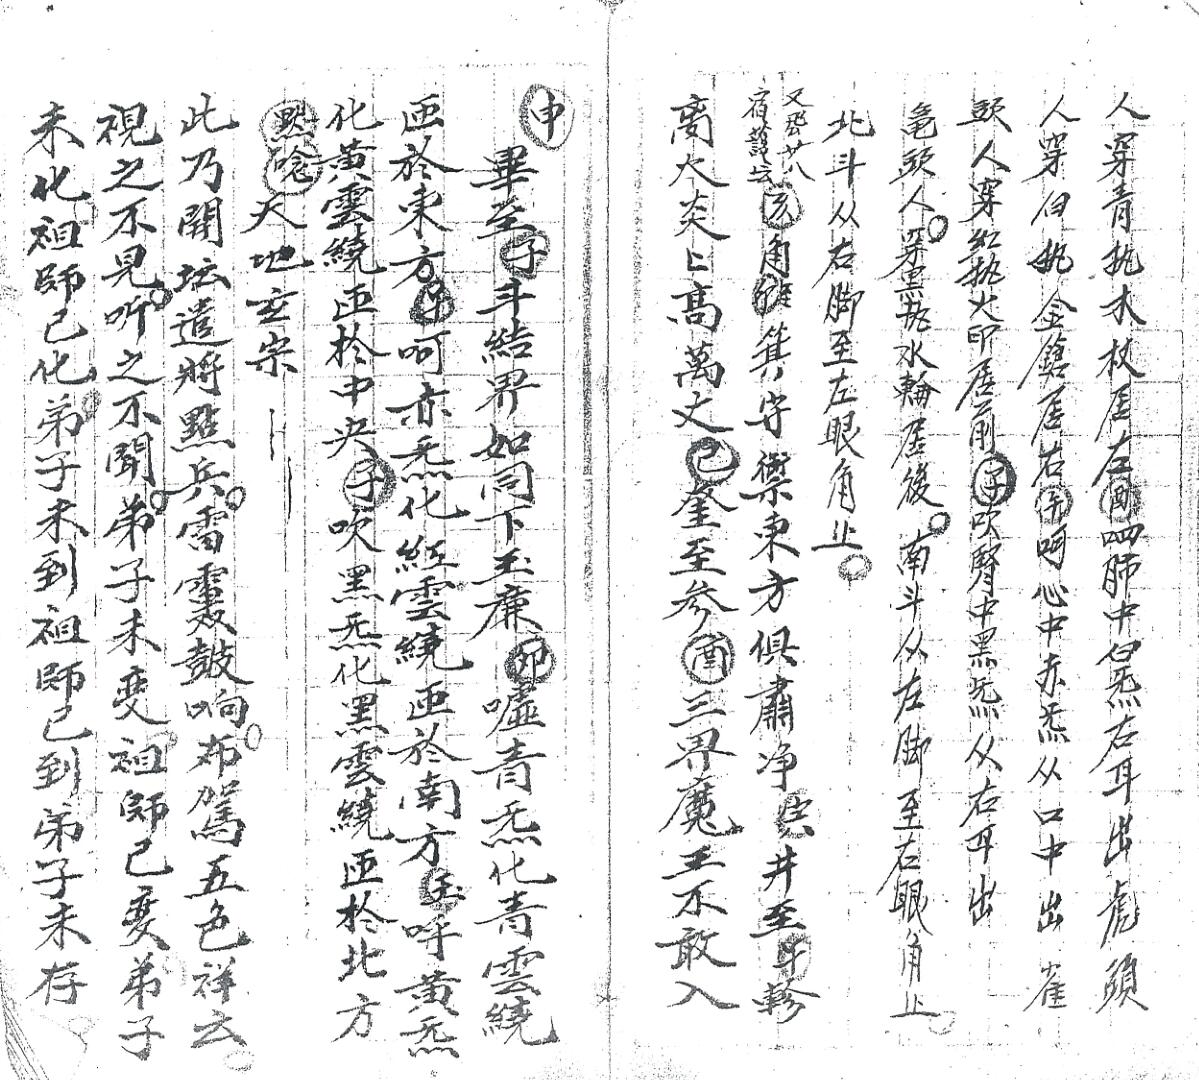 人穿青执水杖居左酉呬肺中白炁右耳出虎頭
人穿白执金鎗居右午呵心中赤炁从口中出雀
頭人穿紅执火印居前子吹腎中黑炁从右耳出
亀頭人穿黑执水輪居後南斗从左脚至右眼角止
北斗从右脚至左眼角止
又廿八
宿亥角箕守禦東方俱肅净井至轸
离火炎上高萬丈巳奎至参酉三界魔王不敢入
申
畢至子斗結界如同下玉廉卯嘘青炁化青雲繞
匝於東方午呵赤炁化紅雲繞匝於南方呼黄炁
化黄雲繞匝於中央子吹黑炁化黑雲繞匝於北方
天地玄宗
此乃開坛遣將點兵雷鼓响布駕五色祥云
視之不見听之不聞弟子未变祖師已变弟子
未化祖師已化弟子未到祖師已到弟子未存